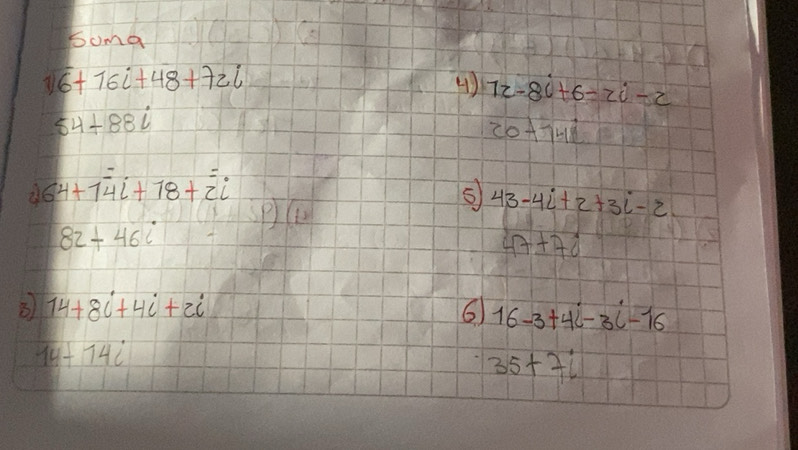 Suma
1) 6+16i+48+72i
54+88i
2) 64+14i+18+2i
82+46i
3) 14+8i+4i+2i
14+14i
4) 12-8i+6-2i-2
20+14i
5) 43-4i+2+3i-2
47+7i
6) 16-3+4i-3i-16
35+7i